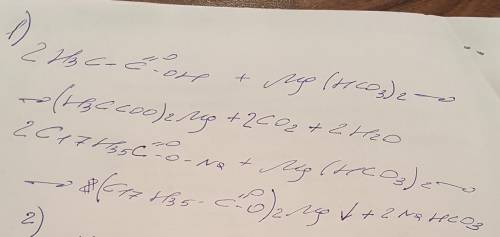 1)
2 H3C - C =O - OH + Mg(HCO3)2 →
→ (H3CCOO)2Mg + 2CO2 + 2H2O
2 C17H35C =O - O - Na + Mg(HCO3)2 →
→ (C17H35 - C =O - O)2Mg ↓ + 2NaHCO3
2)